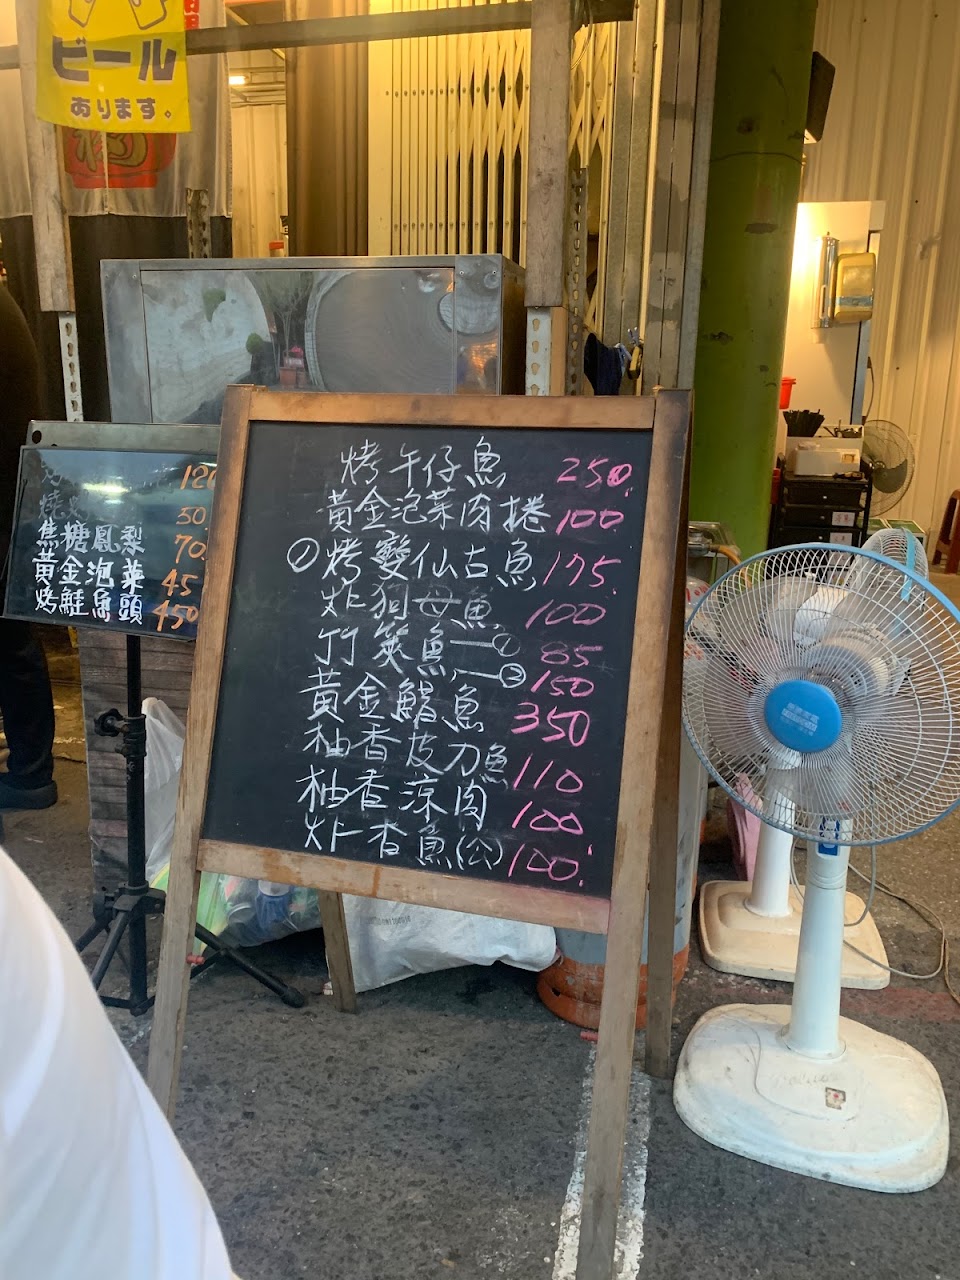 ビール
あります。
烤午仔魚 250.
黃金泡菜肉捲 100
① 烤變仙古魚 175.
炸狗母魚 100
竹筴魚—① 85
—② 150
黃金鯧魚 350
柚香皮刀魚 110
柚香涼肉 100
炸香魚(公) 100.
120
50.
焦糖鳳梨 70.
黃金泡菜 45
烤鮭魚頭 450